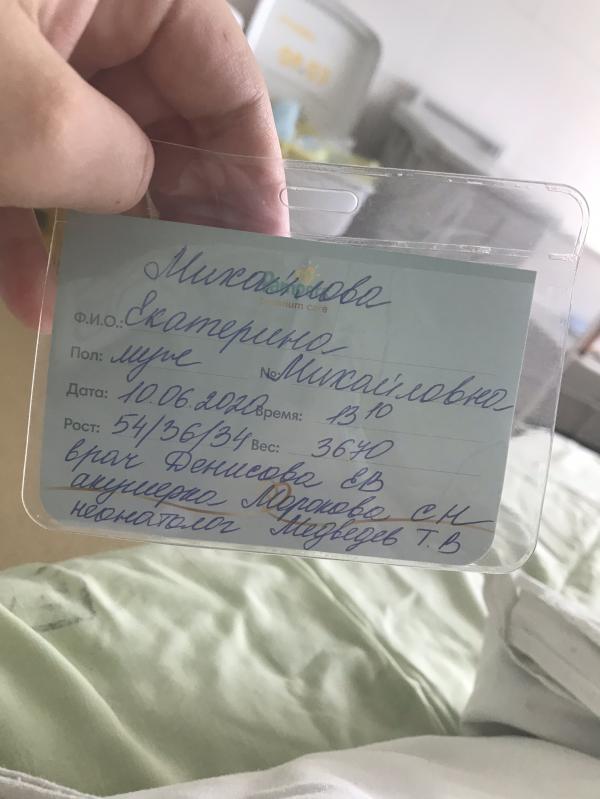 Михайлова
Ф.И.О.: Екатерина
Пол: муж № Михайловна
Дата: 10.06.2020 Время: 13 10
Рост: 54/36/34 Вес: 3670
врач Денисова ЕВ
акушерка Марокова С.Н
неонатолог Медведев Т.В